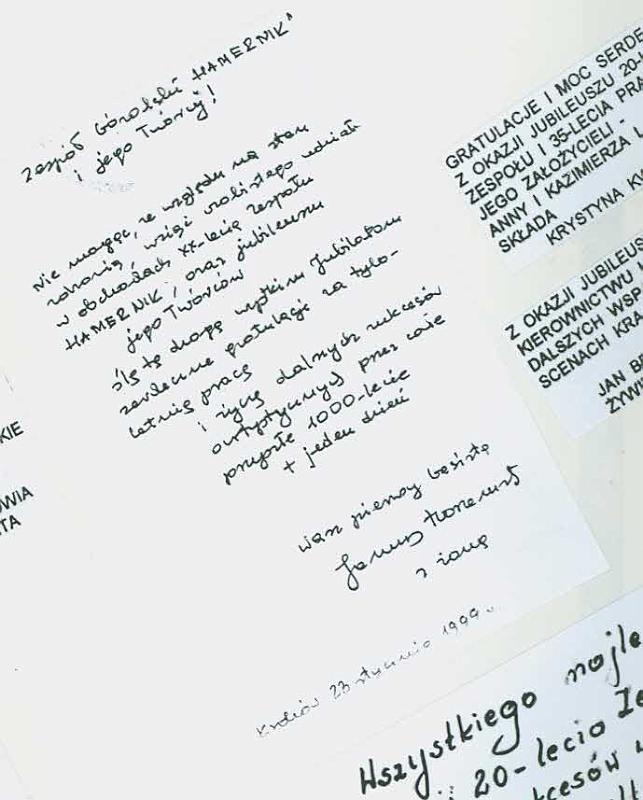 Zespół Góralski "HAMERNIK"
i jego Twórcy!
Nie mogąc, ze względu na stan
zdrowia, wziąć osobistego udziału
w obchodach XX-lecia Zespołu
HAMERNIK, oraz jubileuszu
jego Twórców
Ślę tę drogą wszystkim Jubilatom
serdeczne gratulacje za tylo-
letnią pracę
i życzę dalszych sukcesów
artystycznych przez całe
przyszłe 1000-lecie
+ jeden dzień
Wasz pierwszy basista
Janusz
z żoną
Kraków 23 stycznia 1999 r.
GRATULACJE I MOC SERDE
Z OKAZJI JUBILEUSZU 20-L
ZESPOŁU I 35-LECIA PRA
JEGO ZAŁOŻYCIELI -
ANNY I KAZIMIERZA L
SKŁADA
KRYSTYNA KW
Z OKAZJI JUBILEUS
KIEROWNICTWU I
DALSZYCH WSP
SCENACH KRA
JAN BE
ŻYWI
KIE
OWIA
TA
Wszystkiego najle
20-lecia Ze
kcesów